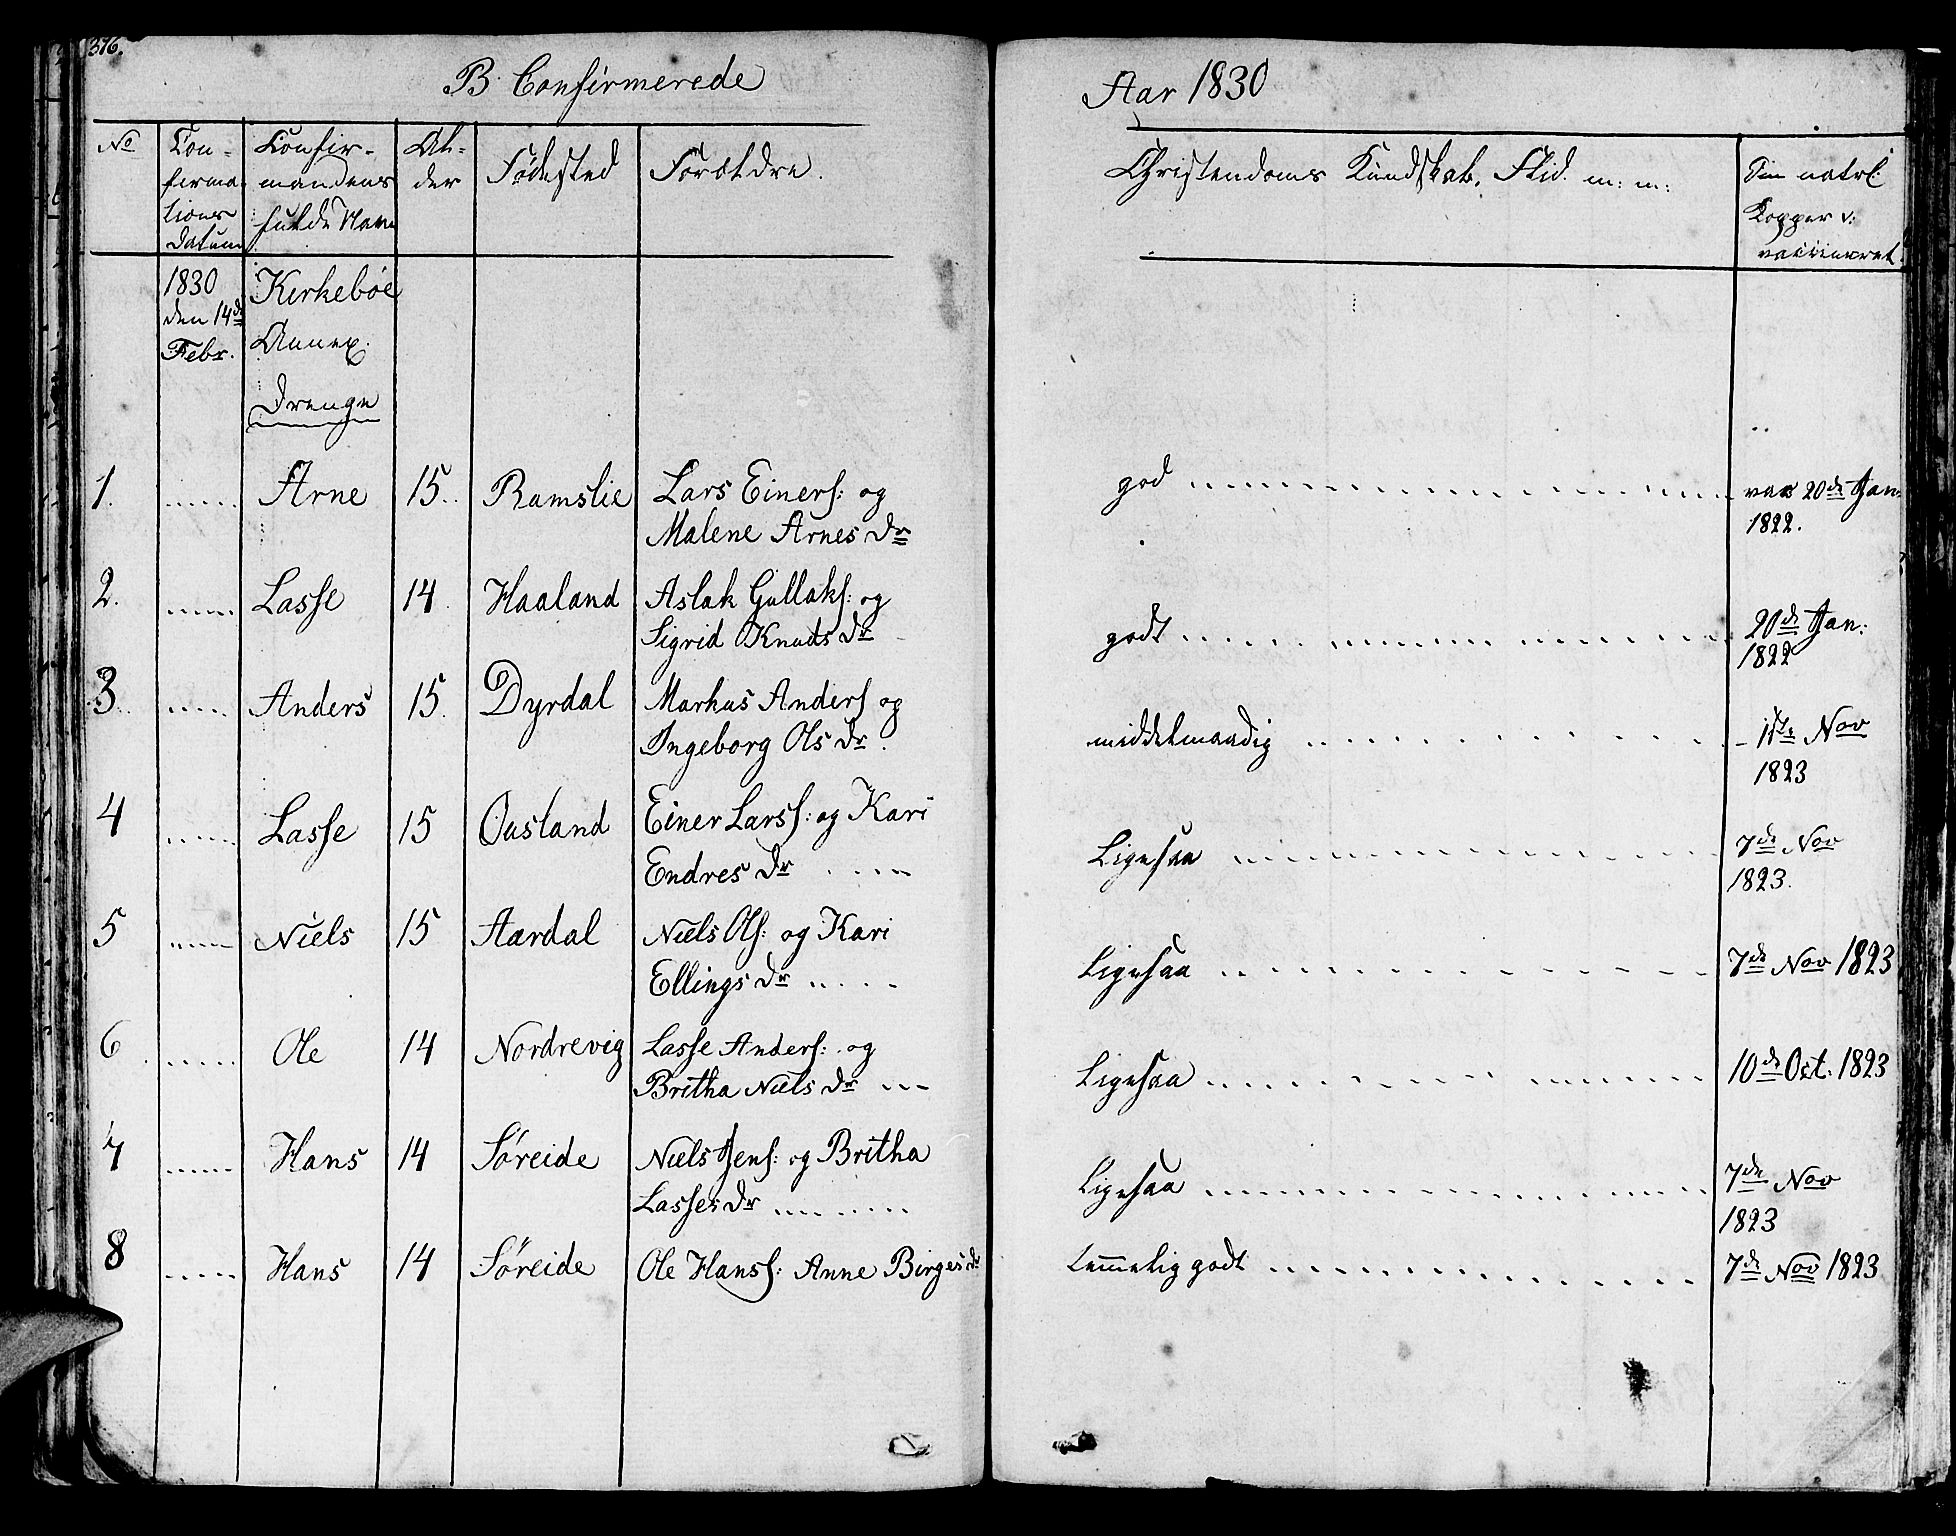 376.
B. Confirmerede
Aar 1830
No
Con-
firma-
tions
Datum
Confir-
mandens
fulde Navn
Al-
der
Födested
Forældre.
Christendoms Kundskab, Flid. m: m:
Den natrl:
Kopper v:
vaccineret.
1830
den 14de
Febr.
Kirkeböe
Annex.
Drenge
1. ...... Arne 15. Ramslie Lars Einers: og
Malene Arnes Dr
god
vac 20de Jan:
1822.
2. ...... Lasse 14. Haaland Aslak Gullaks: og
Sigrid Knuds Dr
godt
20de Jan:
1822
3. ..... Anders 15. Dyrdal Markus Anders og
Ingeborg Ols Dr.
middelmaadig
1823
4 ...... Lasse 15 Ousland Einer Larss: og Kari
Endres Dr
Ligesaa
7de Nov
1823.
5 ...... Niels 15 Aardal Niels Ols: og Kari
Ellings Dr
Ligesaa
7de Nov 1823
6 ...... Ole 14 Nordrevig Lasse Anders: og
Britha Niels Dr
Ligesaa
10de Oct. 1823
7 ...... Hans 14 Söreide Niels Jens: og Britha
Lasses Dr
Ligesaa
7de Nov
1823
8 ..... Hans 14 Söreide Ole Hanss: Anne Birges Dr
temmelig godt
7de Nov 1823